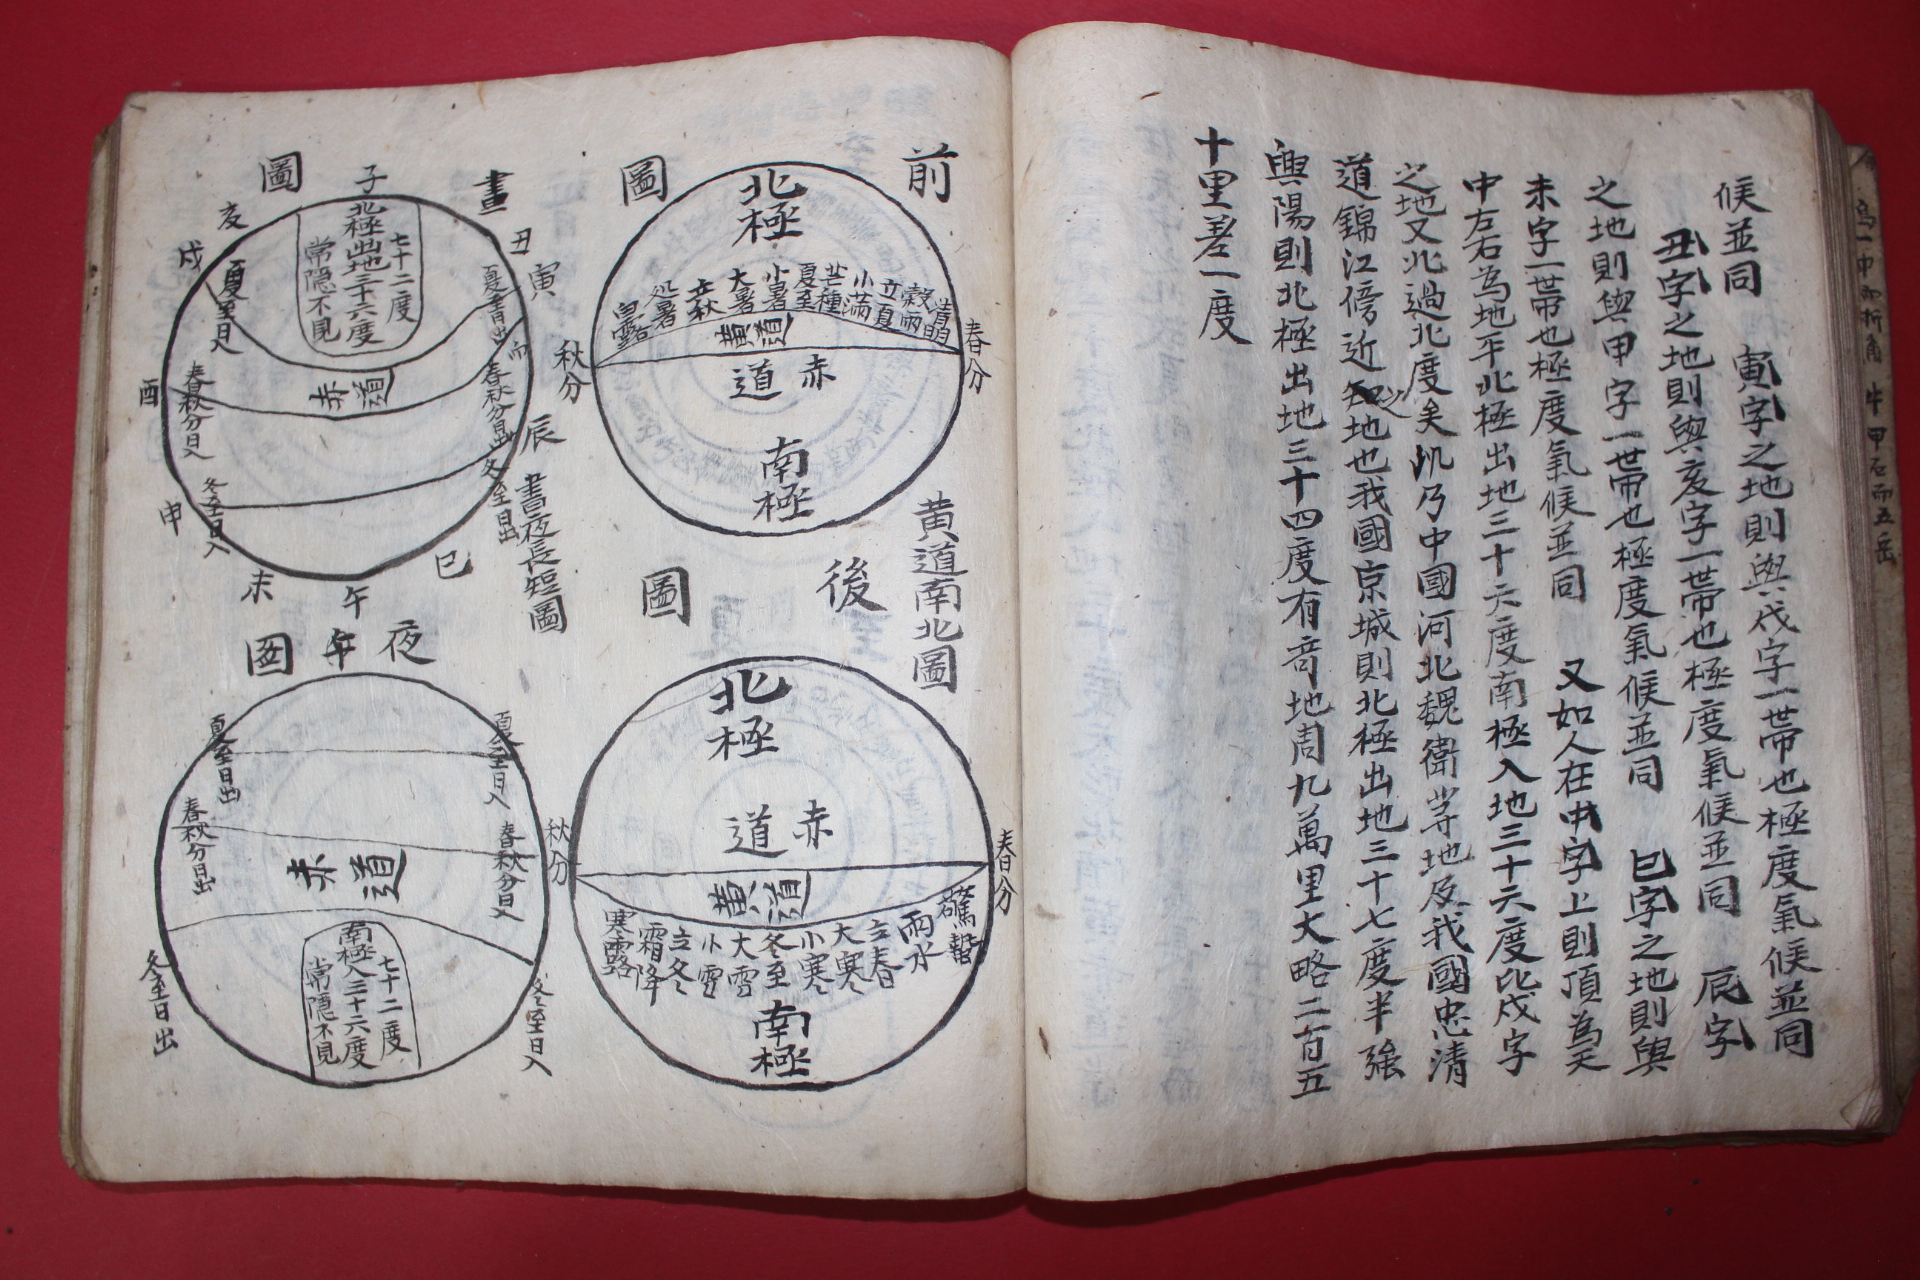 候並同　寅字之地則與戌字一帶也極度氣候並同
丑字之地則與亥字一帶也極度氣候並同　辰字
之地則與甲字一帶也極度氣候並同　巳字之地則與
未字一帶也極度氣候並同　又如人在中字上則頂為天
中左右為地平北極出地三十六度南極入地三十六度比戌字
之地又北過北度矣汎乃中國河北魏衛等地及我國忠清
道錦江傍近之地也我國京城則北極出地三十七度半強
興陽則北極出地三十四度有奇地周九萬里大略二百五
十里差一度
前
圖
北極
清明
穀雨
立夏
小滿
芒種
夏至
小暑
大暑
立秋
処暑
白露
黃道
赤道
春分
秋分
南極
黃道南北圖
後
圖
北極
赤道
黃道
春分
秋分
驚蟄
雨水
立春
大寒
小寒
冬至
大雪
小雪
立冬
霜降
寒露
南極
晝
圖
子
丑
寅
辰
巳
午
未
申
酉
戌
亥
七十二度
北極出地三十六度
常隱不見
夏至日入
赤道
春秋分日出
春秋分日入
冬至日出
冬至日入
晝夜長短圖
夜
圖
夏至日出
夏至日入
春秋分日出
春秋分日入
赤道
七十二度
南極入三十六度
常隱不見
冬至日出
冬至日入